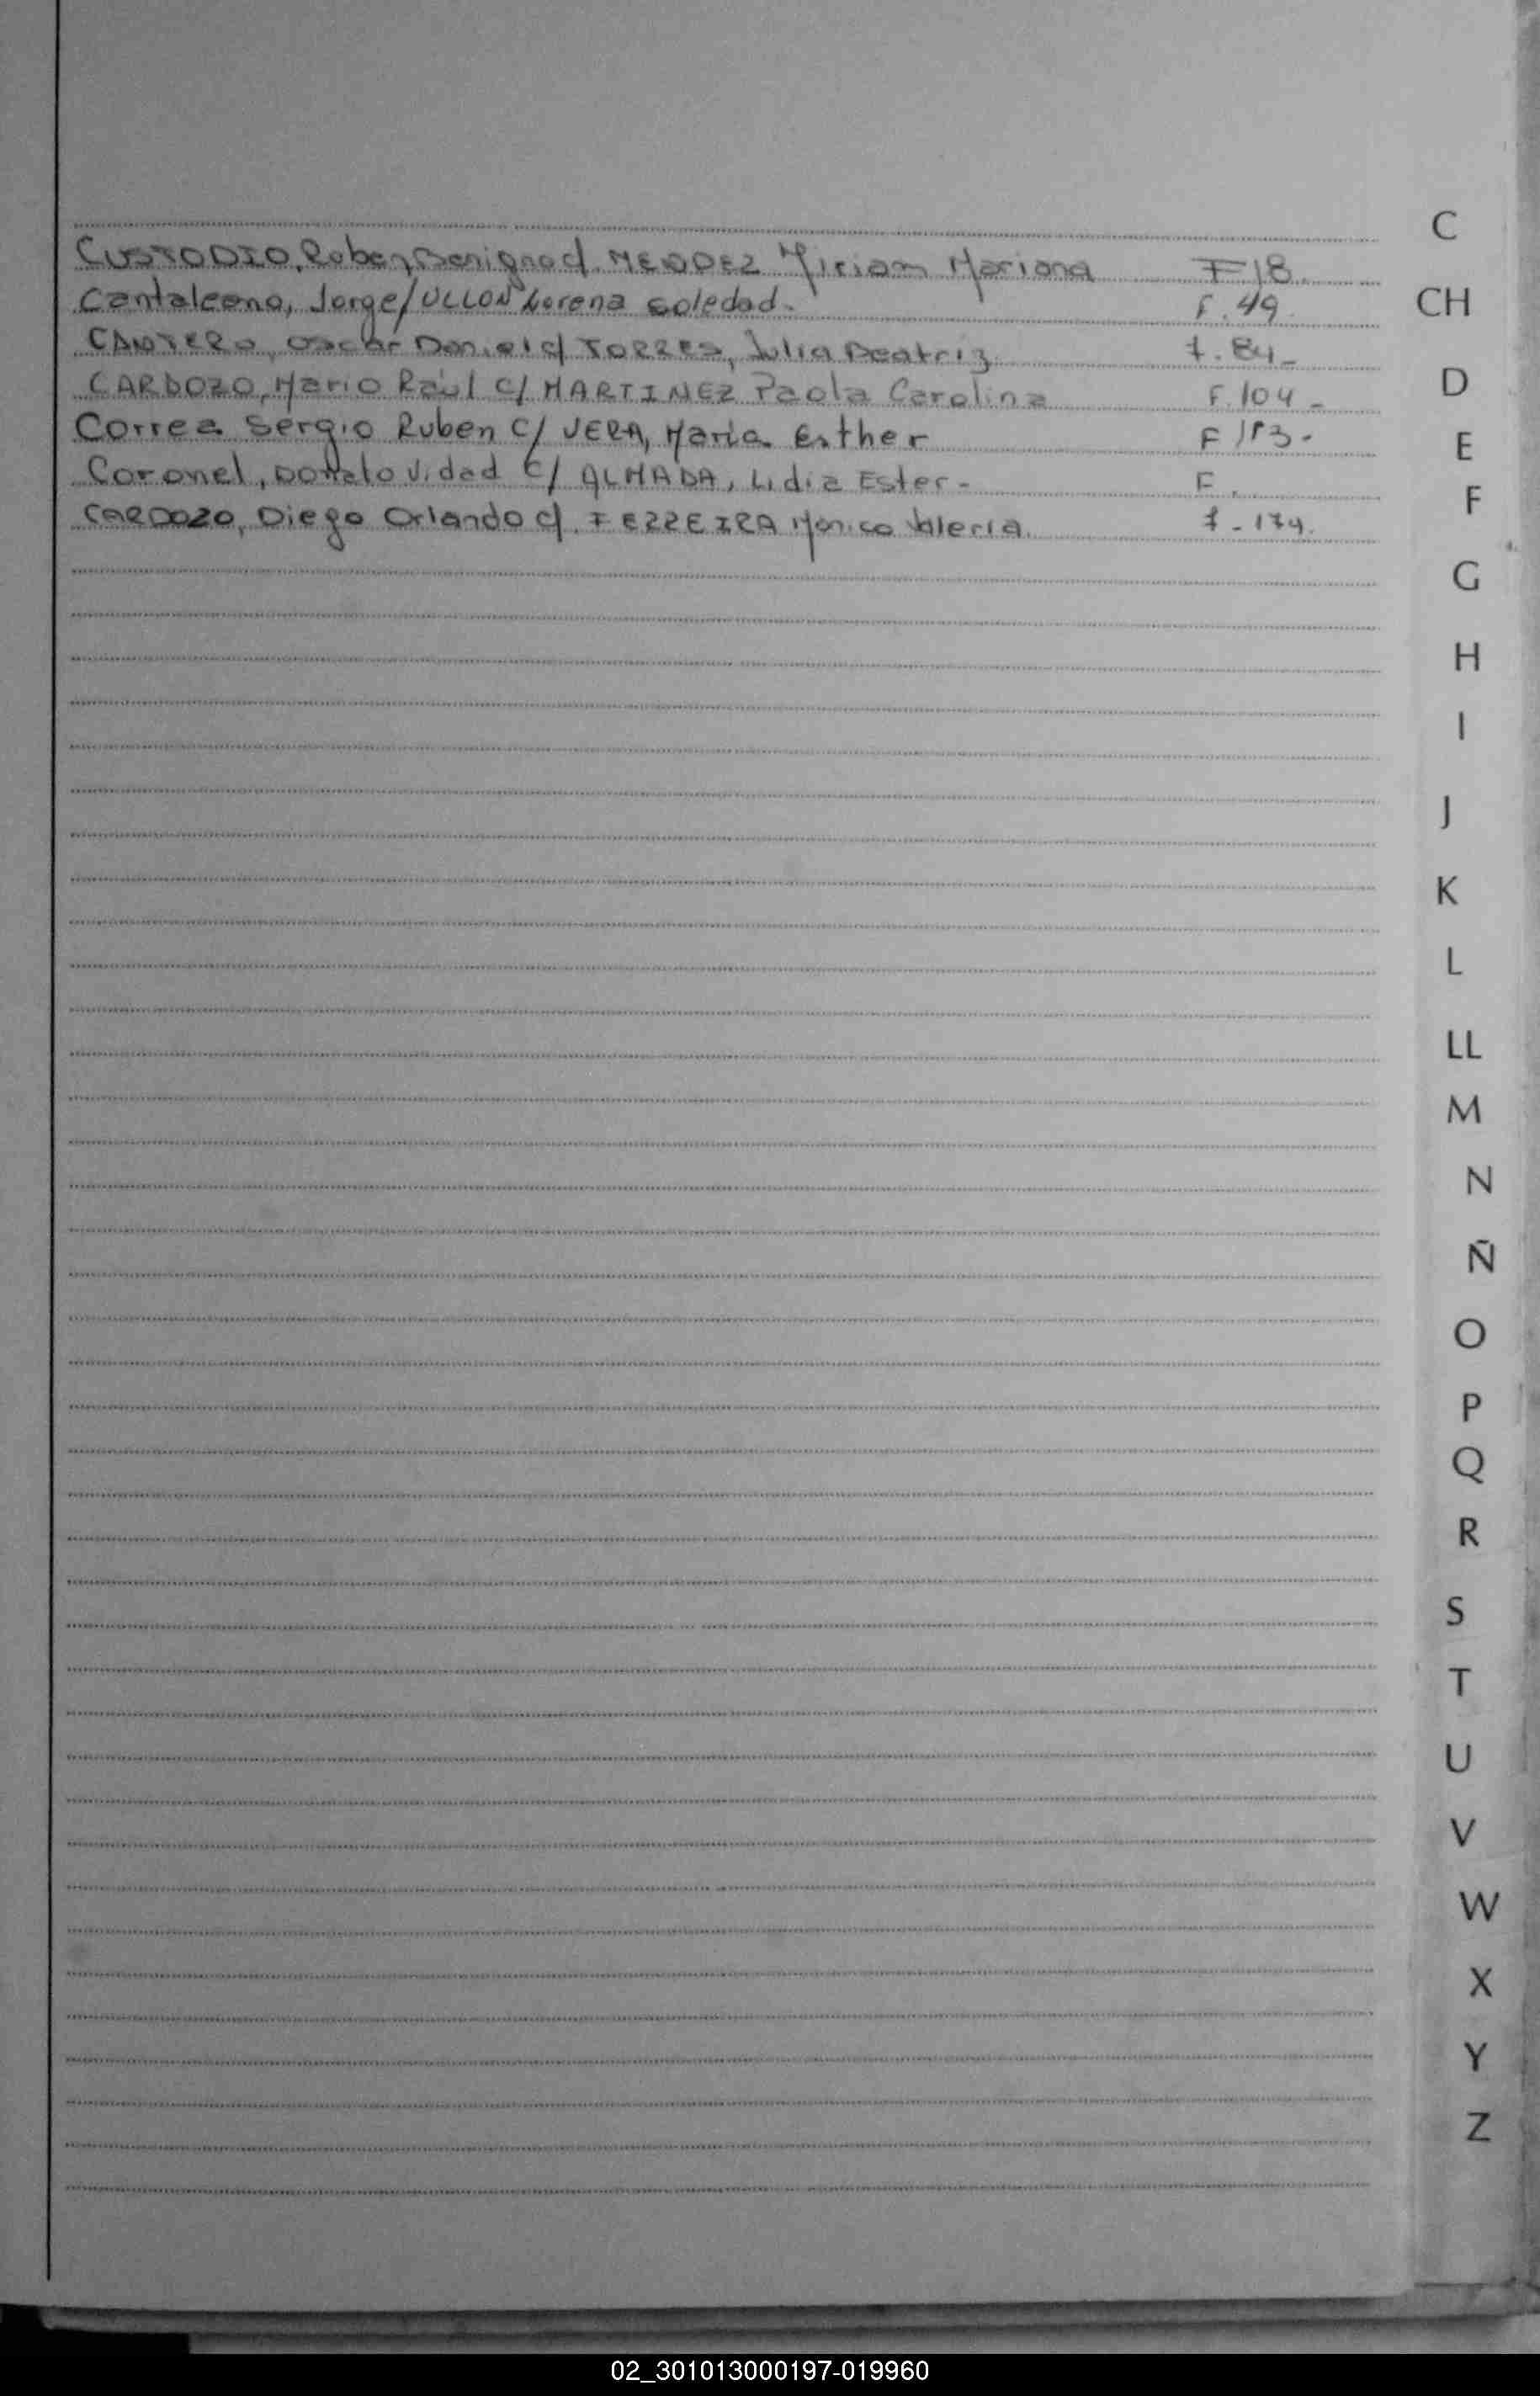 CUSTODIO, Ruben Benigno c/. MENDEZ Miriam Mariana F 18.
Cantaleano, Jorge/ULLON Lorena Soledad. F. 49.
CANTERO, Oscar Daniel c/ TORRES, Julia Beatriz. f. 84-
CARDOZO, Mario Raúl c/ MARTINEZ Paola Carolina F. 104-
Correa Sergio Ruben c/ VERA, Maria Esther F 113-
Coronel, Vidad c/ ALMADA, Lidia Ester- F.
CARDOZO, Diego Orlando c/. FERREIRA Monica Valeria. f-174.
C
CH
D
E
F
G
H
I
J
K
L
LL
M
N
Ñ
O
P
Q
R
S
T
U
V
W
X
Y
Z
02_301013000197-019960